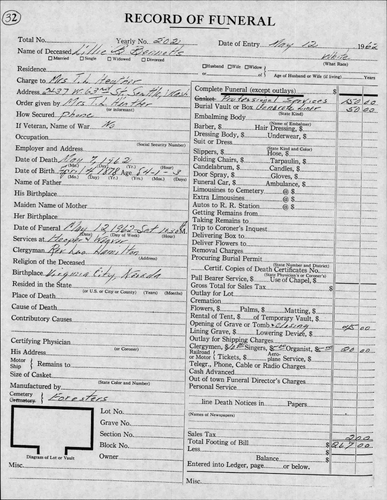 32
RECORD OF FUNERAL
Total No. Yearly No. 202 Date of Entry May 12 1962
Name of Deceased Lillie Bennetts White
(What Race)
Married Single Widowed Divorced Husband Wife Widow
Residence or Age of Husband or Wife (if living) Years
Charge to Mrs T.L. Heather
Address 2437 W. 63rd St, Seattle, Wash
Order given by Mrs T.L. Heather
(or informant)
How Secured phone
If Veteran, Name of War No
Occupation
(Social Security Number)
Employer and Address
Date of Death May 7, 1962
(Mo.) (Da.) (Yr.) (Hour)
Date of Birth 1878
(Mo.) (Da.) (Yr.) (Yrs.) (Mos.) (Days)
Name of Father
His Birthplace
Maiden Name of Mother
Her Birthplace
Date of Funeral May 12, 1962 Sat
(Mo.) (Date) (Yr.) (Day of Week) (Hour)
Services at
Clergyman Hamilton
Religion of the Deceased
Birthplace Virginia City, Nevada
Resided in the State
(or U.S. or City or County) (Years) (Months)
Place of Death
Cause of Death
Contributory Causes
Certifying Physician
(or Coroner)
His Address
Motor Ship Remains to
Size of Casket
(State Color and Number)
Manufactured by
Cemetery
Crematory Foresters
Lot No.
Grave No.
Section No.
Block No.
Owner
Diagram of Lot or Vault
Misc.
Complete Funeral (except outlays) $
Casket Professional Services 150 00
Burial Vault or Box Concrete Liner 50 00
(State Kind)
Embalming Body
(Name of Embalmer)
Barber, $ Hair Dressing, $
Dressing Body, $ Underwear, $
Suit or Dress
(State Kind and Color)
Slippers, $ Hose, $
Folding Chairs, $ Tarpaulin, $
Candelabrum, $ Candles, $
Door Spray, $ Gloves, $
Funeral Car, $ Ambulance, $
Limousines to Cemetery @ $
Extra Limousines @ $
Autos to R. R. Station @ $
Getting Remains from
Taking Remains to
Trip to Coroner's Inquest
Delivering Box to
Deliver Flowers to
Removal Charges
Procuring Burial Permit
(State Number and District)
Certif. Copies of Death Certificates No.
(State Physician's or Coroner's)
Pall Bearer Service, $ Use of Chapel, $
Gross Total for Sales Tax $
Outlay for Lot $
Cremation
Flowers, $ Palms, $ Matting, $
Rental of Tent, $ of Temporary Vault, $
Opening of Grave or Tomb + closing 45 00
Lining Grave, $ Lowering Device, $
Outlay for Shipping Charges
Clergymen, $ Singers, $ Organist, $ 20 00
Railroad or Motor Tickets, $ Aero-plane Service, $
Telegr., Phone, Cable or Radio Charges
Cash Advanced
Out of town Funeral Director's Charges
Personal Service
line Death Notices in Papers
(Names of Newspapers)
Sales Tax 2 00
Total Footing of Bill $ 267 00
Less $
Balance $
Entered into Ledger, page or below.
Misc.